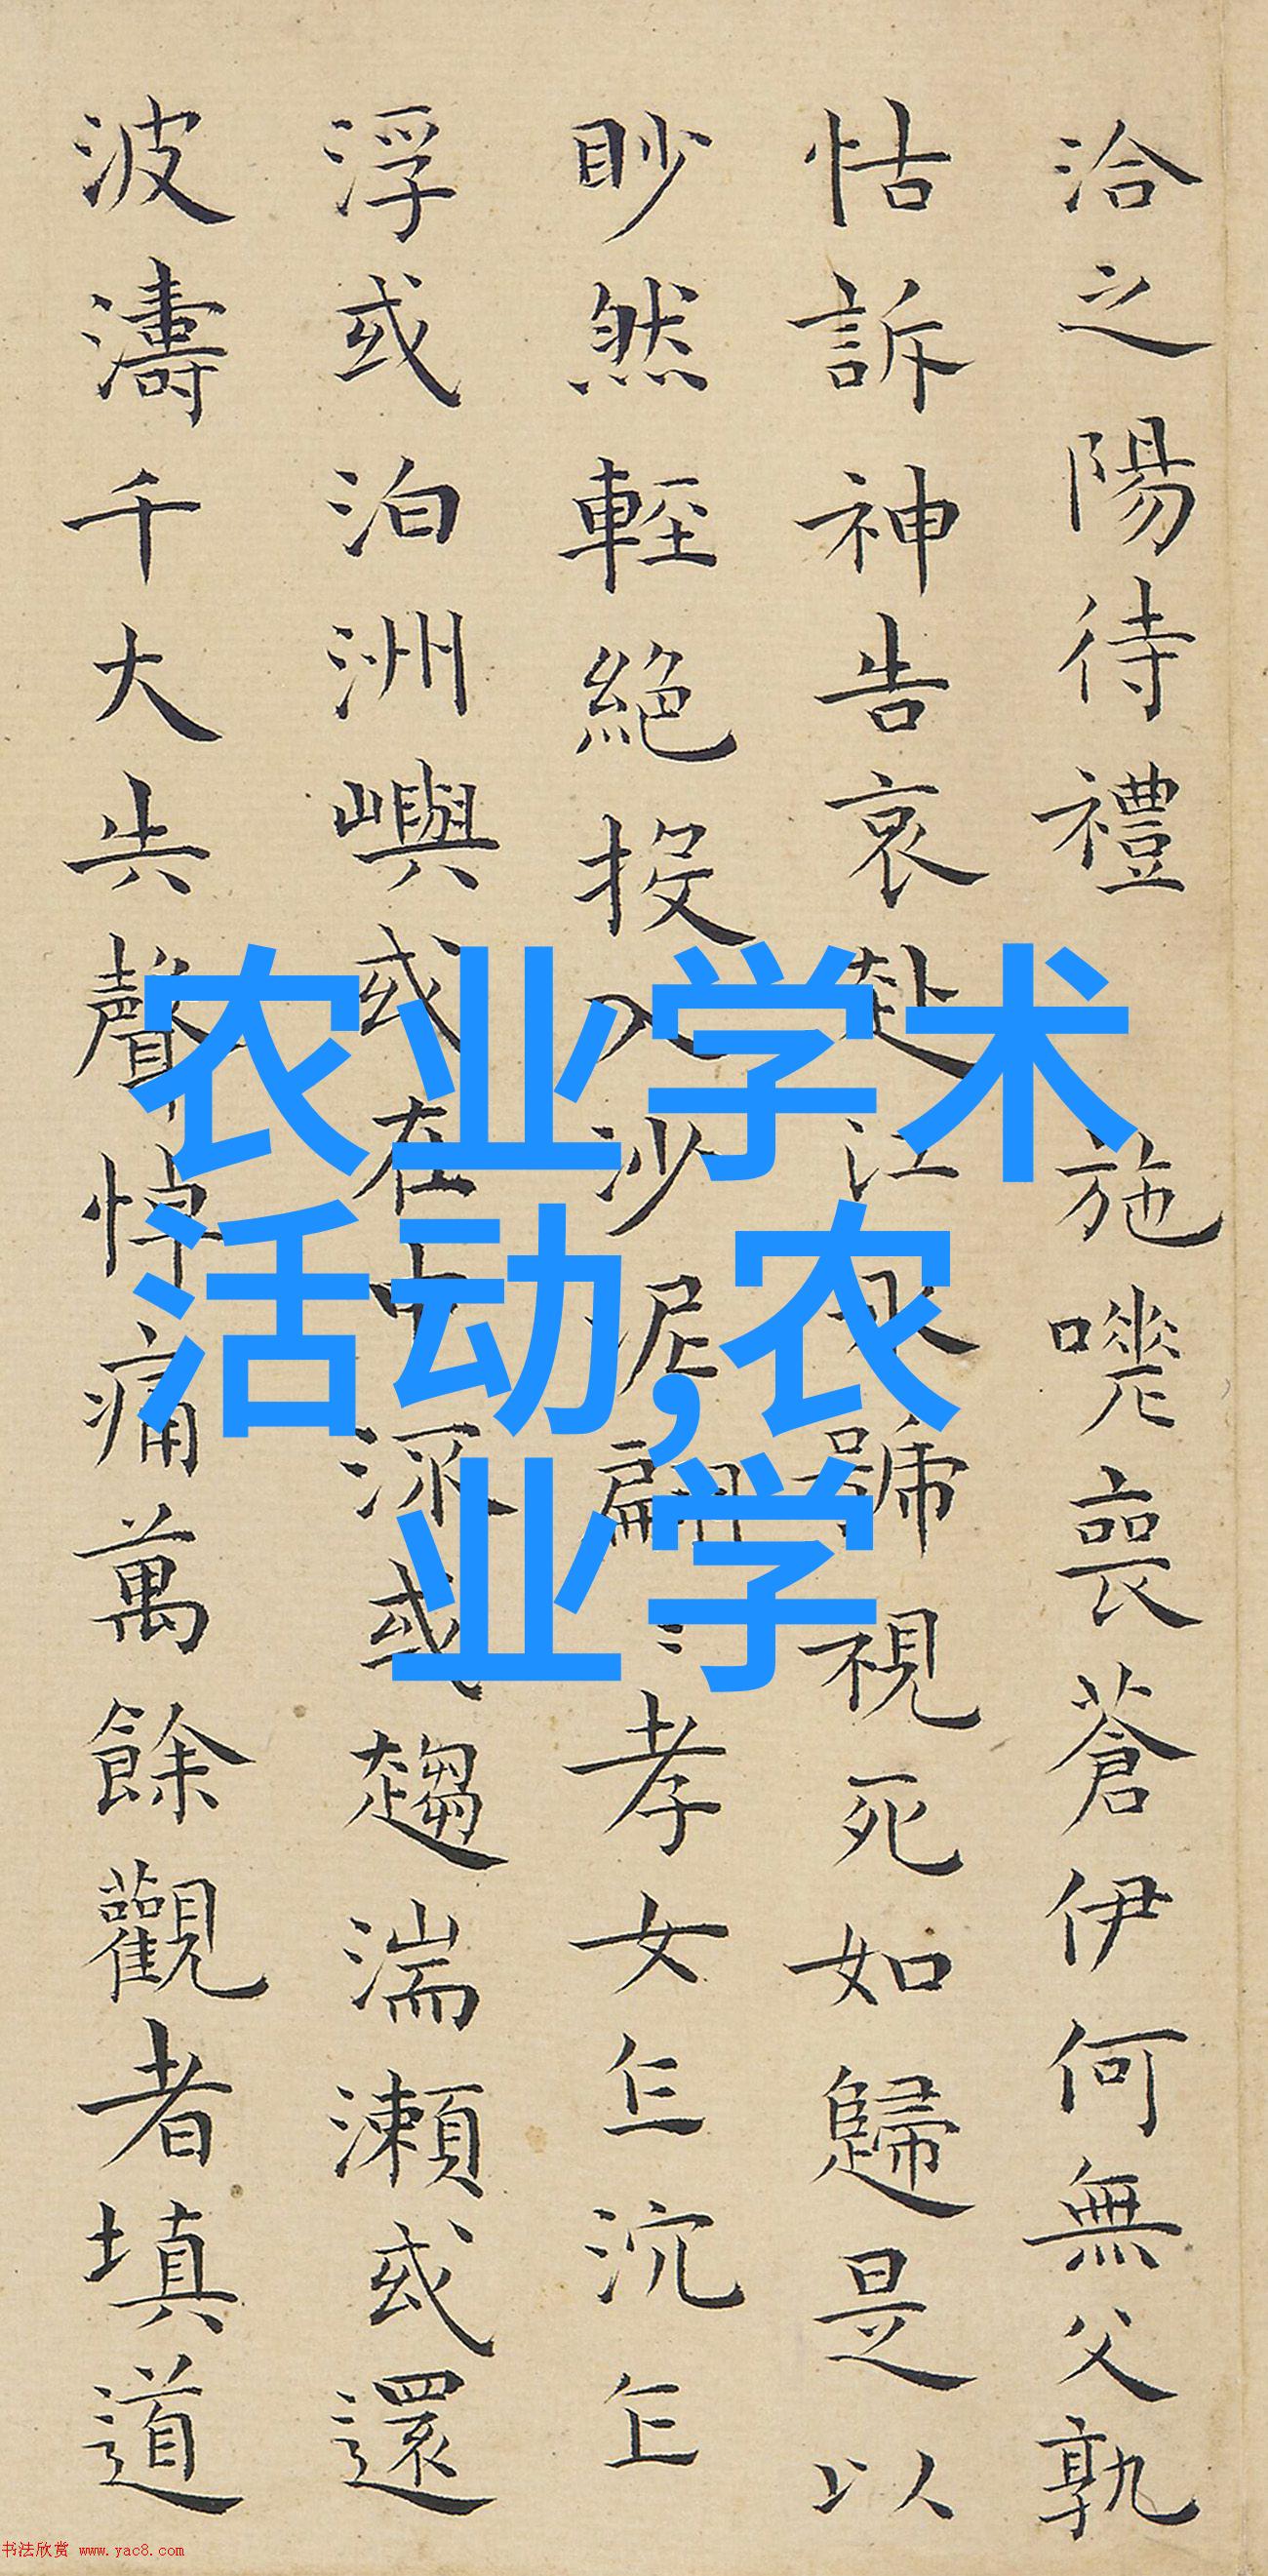 洽之陽待禮 施嘊喪蒼伊何無父孰
怙訴神告哀赴江永號視死如歸是以
眇然輕絕投入沙泥翩孝女乍沉乍
浮或泊洲嶼或在中流或趨湍瀨或還
波濤千夫失聲悼痛萬餘觀者填道
农业学术
活动,农
业学
书法欣赏 www.yac8.com